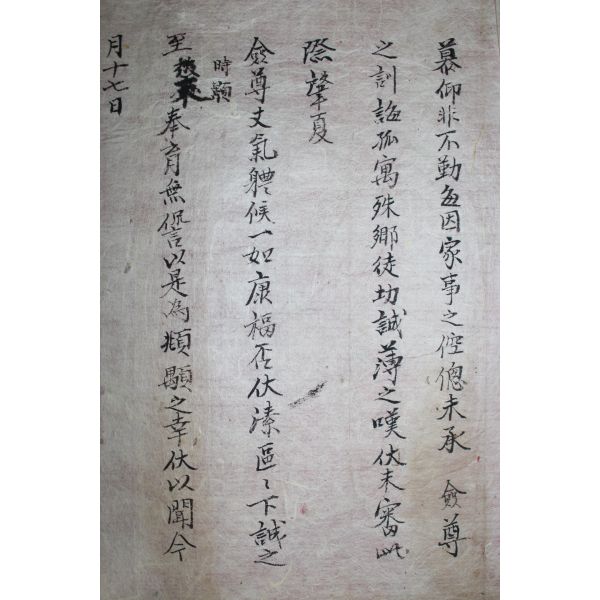 慕仰非不勤每因家事之倥傯未承 僉尊
之訓誨孤寓殊鄉徒切誠薄之嘆伏未審此
際肇夏
僉尊丈氣體候一如康福否伏溸區〻下誠之
至 奉育無 以是為 顯之幸伏以聞今
時顯
月十七日